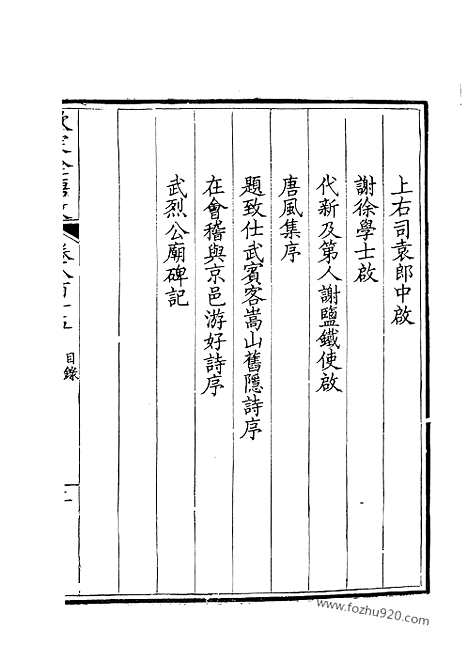 上右司袁郎中啟
謝徐學士啟
代新及第人謝鹽鐵使啟
唐風集序
題致仕武賓客嵩山舊隱詩序
在會稽與京邑游好詩序
武烈公廟碑記
欽定全唐文
卷八百十五
目錄
www.fozhu920.com